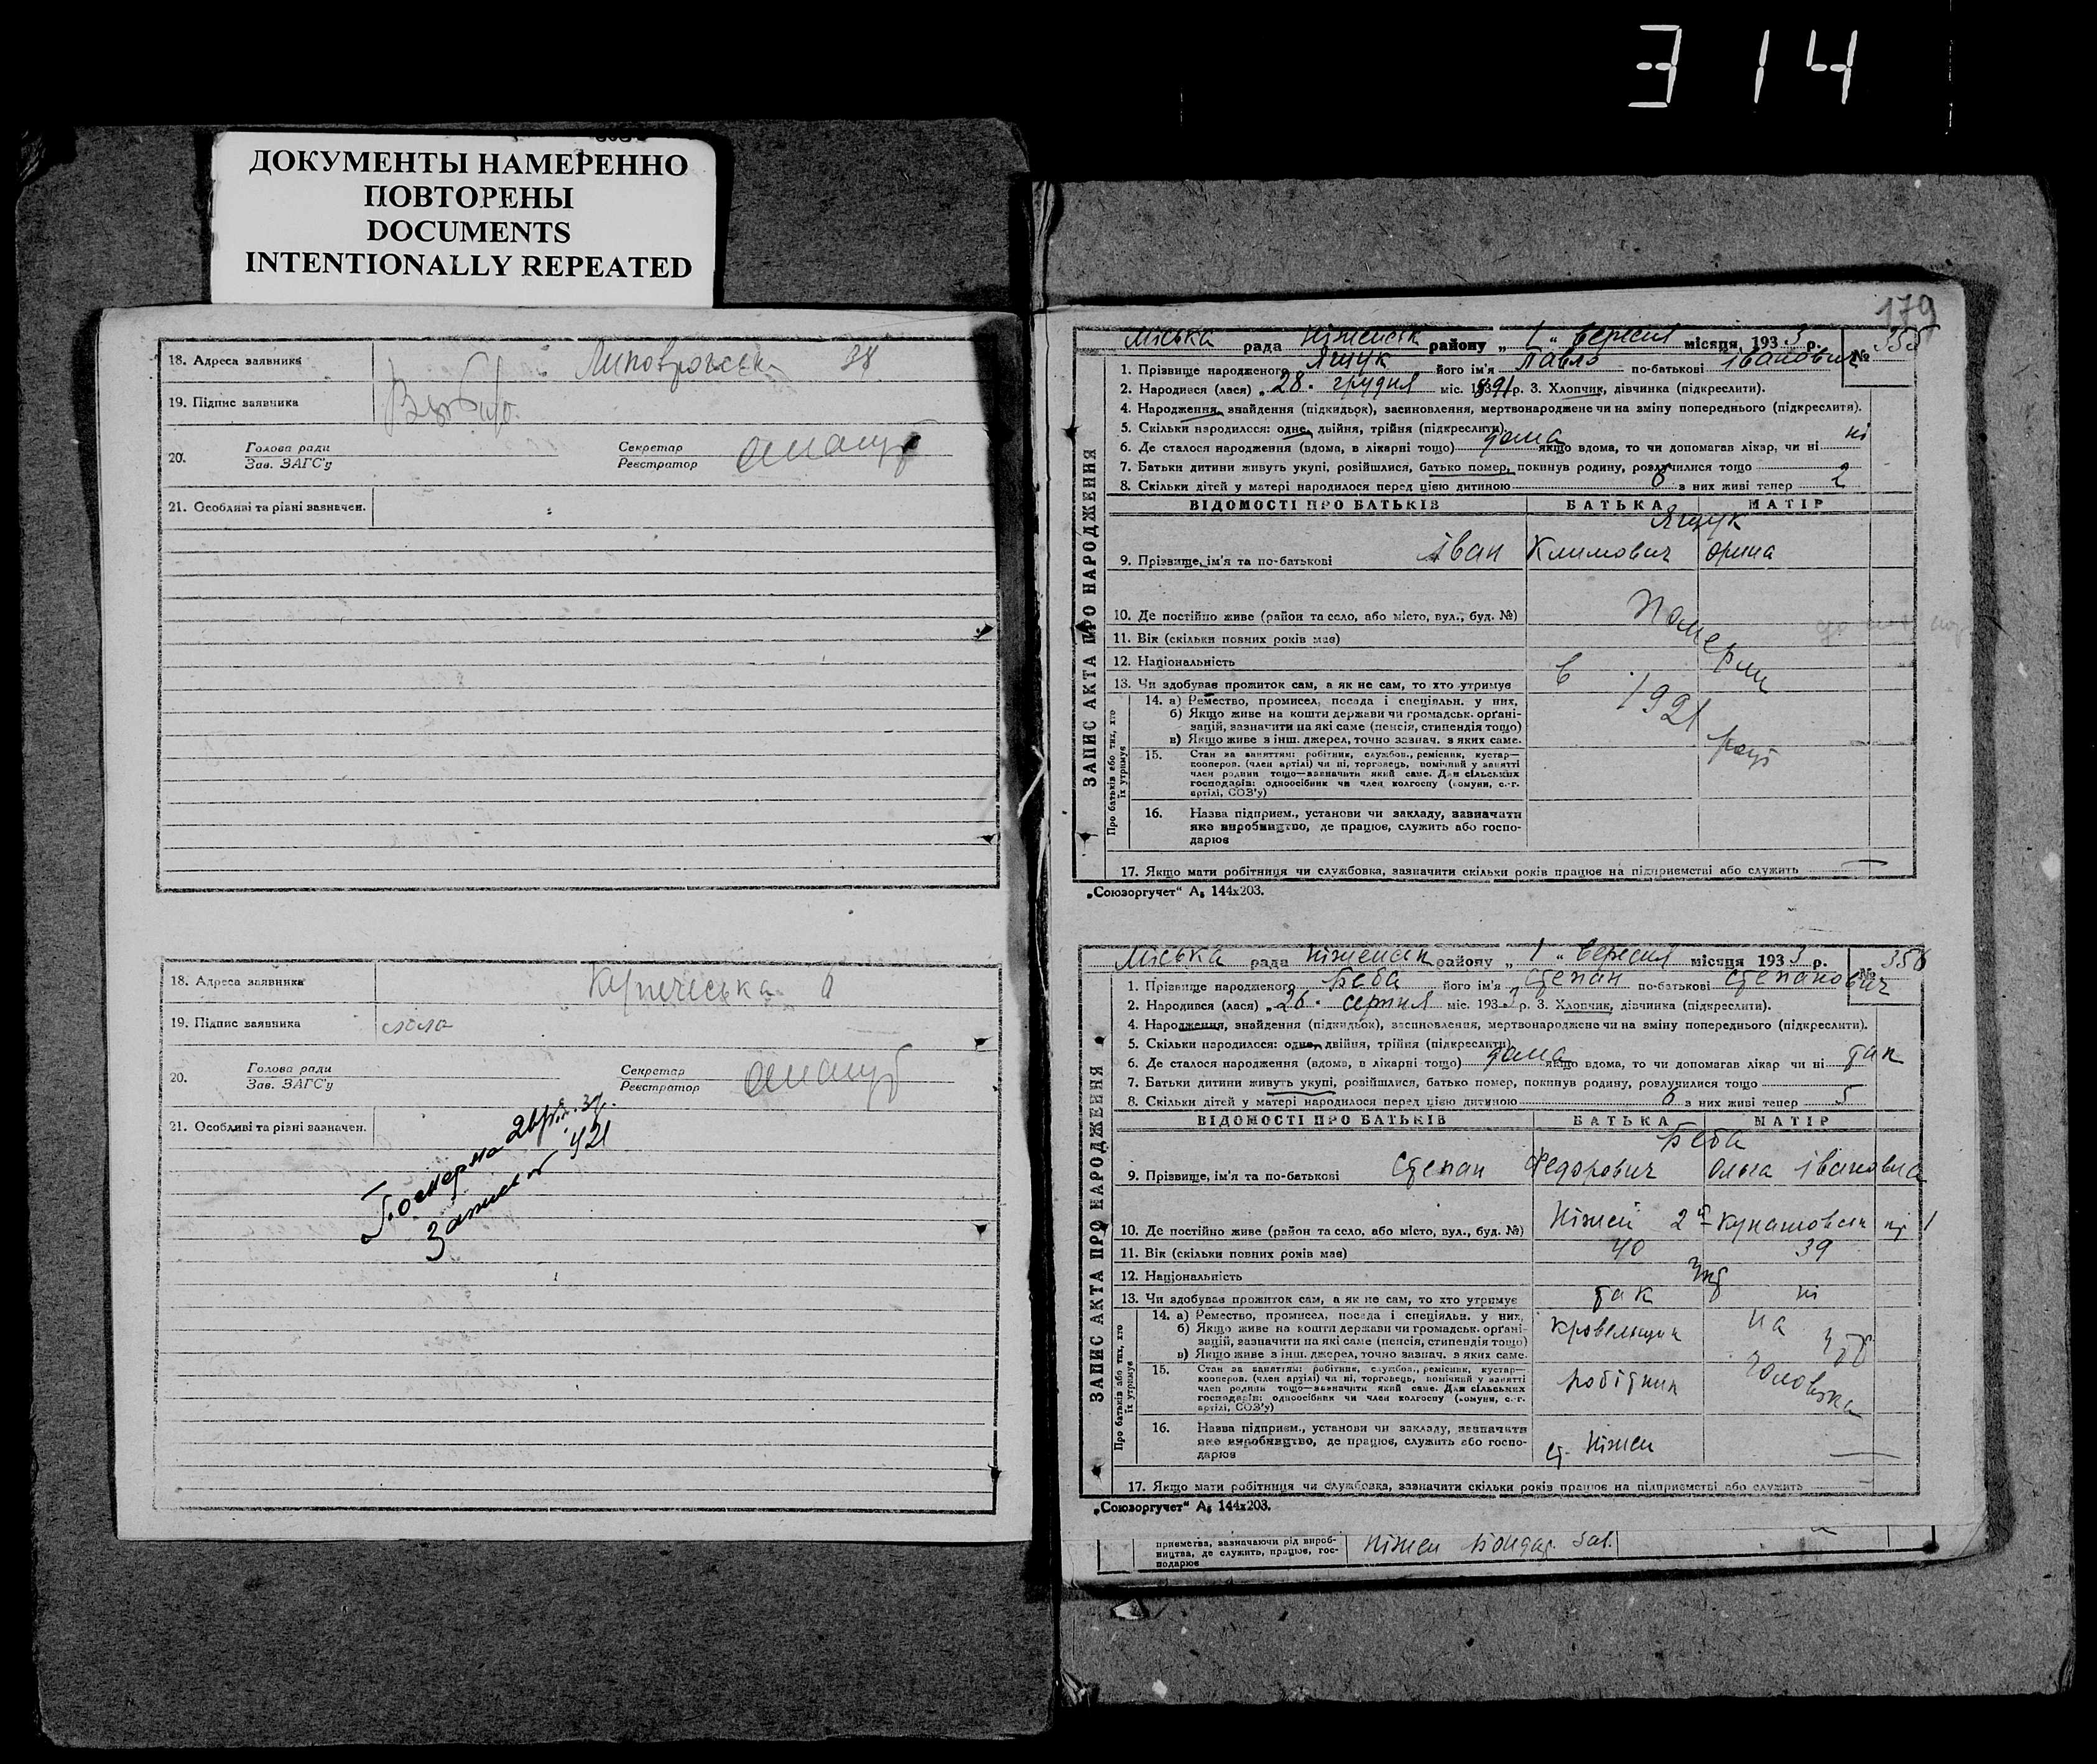 314
ДОКУМЕНТЫ НАМЕРЕННО
ПОВТОРЕНЫ
DOCUMENTS
INTENTIONALLY REPEATED
18. Адреса заявника 38
19. Підпис заявника
20. Голова ради Секретар
Зав. ЗАГС'у Реєстратор
21. Особливі та різні зазначен.
18. Адреса заявника Купечеська 6
19. Підпис заявника
20. Голова ради Секретар
Зав. ЗАГС'у Реєстратор
21. Особливі та різні зазначен.
179
ЗАПИС АКТА ПРО НАРОДЖЕННЯ
Міська рада Ніженськ району „ 1 " вересня місяця 1933 р. № 355
1. Прізвище народженого Ящук його ім'я Павло по-батькові Іванович
2. Народився (лася) „ 28 . грудня міс. 1891 р. 3. Хлопчик, дівчинка (підкреслити).
4. Народження, знайдення (підкидьок), засиновлення, мертвонароджене чи на зміну попереднього (підкреслити).
5. Скільки народилося: одне, двійня, трійня (підкреслити)
6. Де сталося народження (вдома, в лікарні тощо) дома якщо вдома, то чи допомагав лікар, чи ні ні
7. Батьки дитини живуть укупі, розійшлися, батько помер, покинув родину, розлучилися тощо
8. Скільки дітей у матері народилося перед цією дитиною 6 з них живі тепер 2
ВІДОМОСТІ ПРО БАТЬКІВ БАТЬКА МАТІР
Ящук
9. Прізвище, ім'я та по-батькові Іван Климович Орина
10. Де постійно живе (район та село, або місто, вул., буд. №) Померли
11. Вік (скільки повних років має)
12. Національність в 1921 році
13. Чи здобуває прожиток сам, а як не сам, то хто утримує
Про батьків або тих, хто їх утримує
14. а) Ремество, промисел, посада і спеціяльн. у них,
б) Якщо живе на кошти держави чи громадськ. органі-
зацій, зазначити на які саме (пенсія, стипендія тощо)
в) Якщо живе з інш. джерел, точно зазнач. з яких саме.
15. Стан за заняттям: робітник, службов., ремісник, кустар—
кооперов. (член артілі) чи ні, торговець, помічний у занятті
член родини тощо—зазначити який саме. Для сільських
господарів: одноосібник чи член колгоспу (комуни, с.-г.
артілі, СОЗ'у)
16. Назва підприєм., установи чи закладу, зазначати
яке виробництво, де працює, служить або госпо-
дарює
17. Якщо мати робітниця чи службовка, зазначити скільки років працює на підприємстві або служить
„Союзоргучет" А5 144x203.
ЗАПИС АКТА ПРО НАРОДЖЕННЯ
Міська рада Ніженськ району „ 1 " вересня місяця 1933 р. № 356
1. Прізвище народженого Беба його ім'я Степан по-батькові Степанович
2. Народився (лася) „ 26 . серпня міс. 1933 р. 3. Хлопчик, дівчинка (підкреслити).
4. Народження, знайдення (підкидьок), засиновлення, мертвонароджене чи на зміну попереднього (підкреслити).
5. Скільки народилося: одне, двійня, трійня (підкреслити)
6. Де сталося народження (вдома, в лікарні тощо) дома якщо вдома, то чи допомагав лікар чи ні так
7. Батьки дитини живуть укупі, розійшлися, батько помер, покинув родину, розлучилися тощо
8. Скільки дітей у матері народилося перед цією дитиною 6 з них живі тепер 5
ВІДОМОСТІ ПРО БАТЬКІВ БАТЬКА МАТІР
Беба
9. Прізвище, ім'я та по-батькові Степан Федорович Ольга Івановна
10. Де постійно живе (район та село, або місто, вул., буд. №) Ніжен 1
11. Вік (скільки повних років має) 40 39
12. Національність Укр
13. Чи здобуває прожиток сам, а як не сам, то хто утримує так ні
Про батьків або тих, хто їх утримує
14. а) Ремество, промисел, посада і спеціяльн. у них,
б) Якщо живе на кошти держави чи громадськ. органі-
зацій, зазначити на які саме (пенсія, стипендія тощо)
в) Якщо живе з інш. джерел, точно зазнач. з яких саме.
кровельщик на
15. Стан за заняттям: робітник, службов., ремісник, кустар—
кооперов. (член артілі) чи ні, торговець, помічний у занятті
член родини тощо—зазначити який саме. Для сільських
господарів: одноосібник чи член колгоспу (комуни, с.-г.
артілі, СОЗ'у)
робітник
16. Назва підприєм., установи чи закладу, зазначати
яке виробництво, де працює, служить або госпо-
дарює
ст. Ніжен
17. Якщо мати робітниця чи службовка, зазначити скільки років працює на підприємстві або служить
„Союзоргучет" А5 144x203.
приємства, зазначаючи рід вироб-
ництва, де служить, працює, гос-
подарює
Ніжен